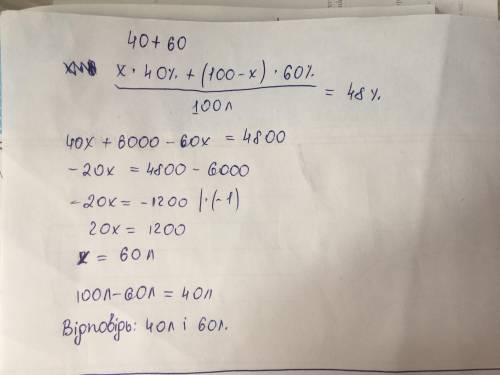 40 + 60
x • 40% + (100 - x) • 60%
100л
= 48%
40x + 6000 - 60x = 4800
-20x = 4800 - 6000
-20x = -1200 |•(-1)
20x = 1200
x = 60л
100л - 60л = 40л
Відповідь: 40л і 60л.